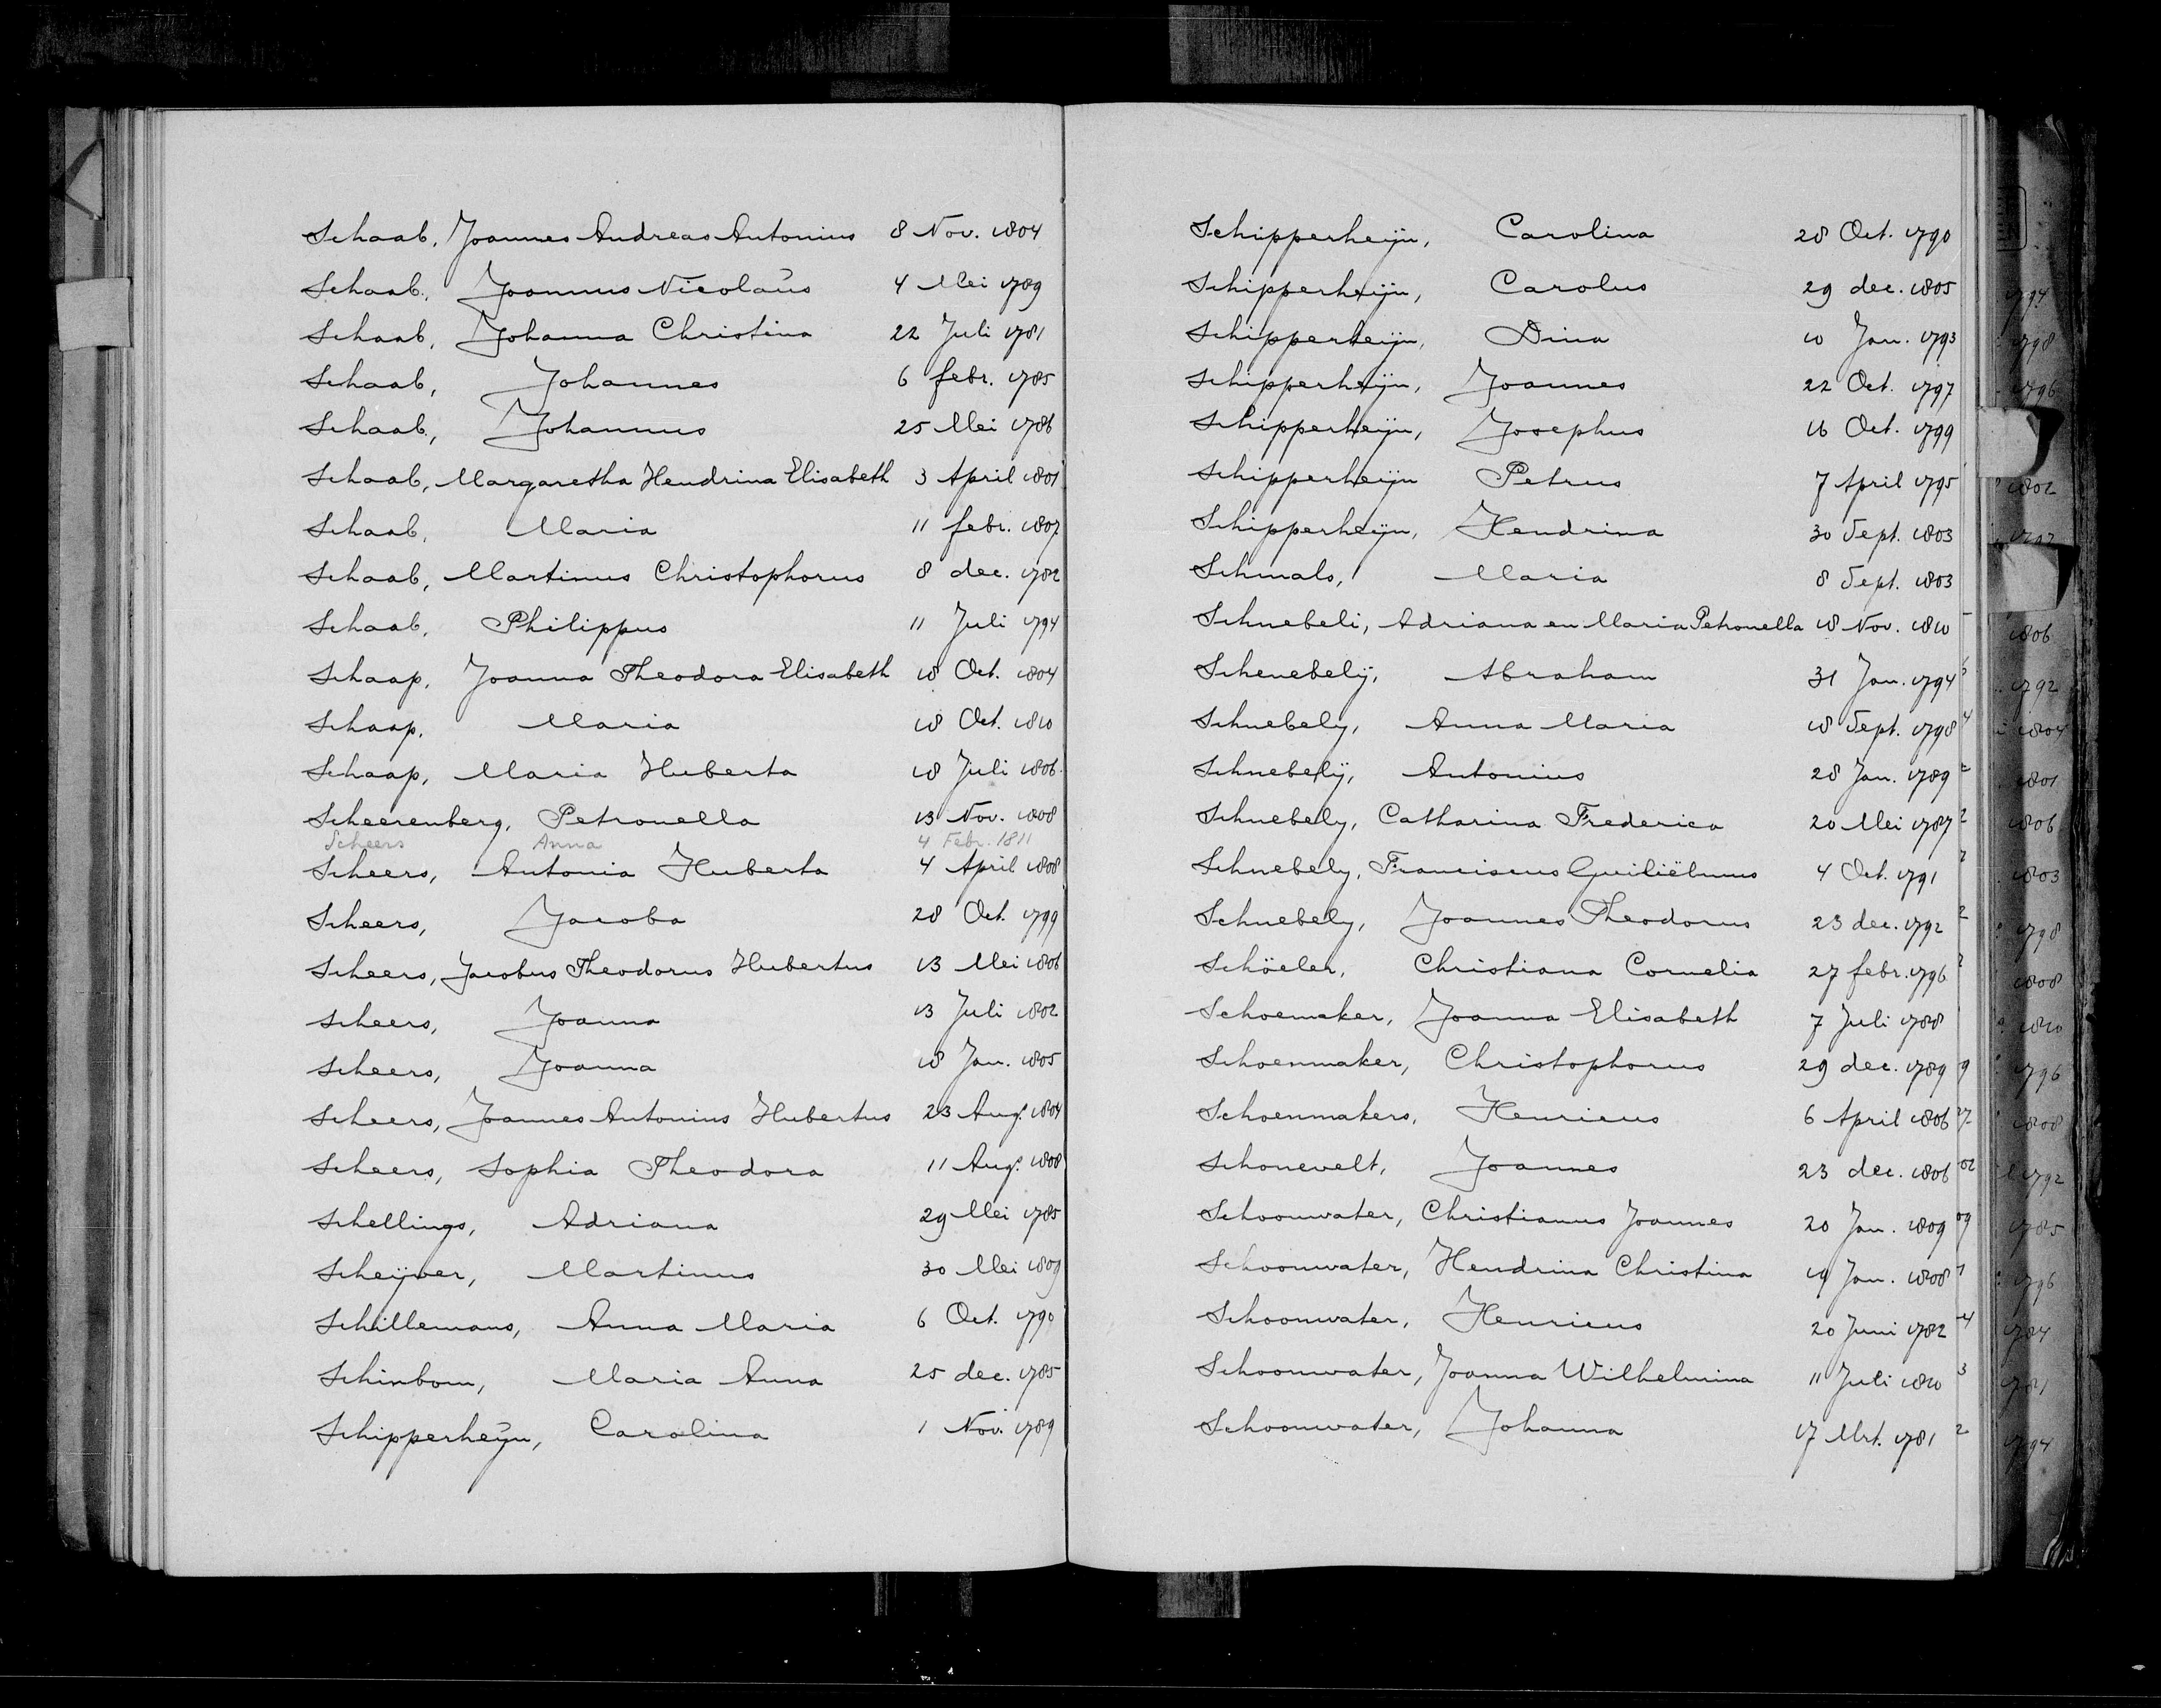 Schaab, Joannes Andreas Antonius 8 Nov. 1804
Schaab, Joannus Nicolaüs 4 Mei 1789
Schaab, Johanna Christina 22 Juli 1781
Schaab, Johannes 6 febr. 1785
Schaab, Johannus 25 Mei 1786
Schaab, Margaretha Hendrina Elisabeth 3 April 1801
Schaab, Maria 11 febr. 1807
Schaab, Martinus Christophorus 8 dec. 1782
Schaab, Philippus 11 Juli 1794
Schaap, Joanna Theodora Elisabeth 18 Oct. 1804
Schaap, Maria 18 Oct. 1810
Schaap, Maria Huberta 18 Juli 1806.
Scheerenberg, Petronella 13 Nov. 1808
Scheers Anna 4 Febr. 1811
Scheers, Antonia Huberta 4 April 1808
Scheers, Jacoba 28 Oct. 1799
Scheers, Jacobus Theodorus Hubertus 13 Mei 1806
Scheers, Joanna 13 Juli 1802
Scheers, Joanna 18 Jan. 1805
Scheers, Joannes Antonius Hubertus 23 Aug. 1804
Scheers, Sophia Theodora 11 Aug. 1808
Schellings, Adriana 29 Mei 1785
Scheijver, Martinus 30 Mei 1809
Schillemans, Anna Maria 6 Oct. 1790
Schinbom, Maria Anna 25 dec. 1785
Schipperheijn, Carolina 1 Nov. 1789
Schipperheijn, Carolina 28 Oct. 1790
Schipperheijn, Carolus 29 dec. 1805
Schipperheijn, Dina 10 Jan. 1793
Schipperheijn, Joannes 22 Oct. 1797
Schipperheijn, Josephus 16 Oct. 1799
Schipperheijn Petrus 7 April 1795
Schipperheijn, Hendrina 30 Sept. 1803
Schmals, Maria 8 Sept. 1803
Schnebeli, Adriana en Maria Petronella 18 Nov. 1810
Schenebelij, Abraham 31 Jan. 1794
Schnebely, Anna Maria 18 Sept. 1798
Schnebelÿ, Antonius 28 Jan. 1789
Schnebely, Catharina Frederica 20 Mei 1787
Schnebely, Franciscus Guiliëlmus 4 Oct. 1791
Schnebely, Joannes Theodorus 23 dec. 1792
Schöeler, Christiana Cornelia 27 febr. 1796
Schoemaker, Joanna Elisabeth 7 Juli 1788
Schoenmaker, Christophorus 29 dec. 1789
Schoenmakers, Henricus 6 April 1806
Schonevelt, Joannes 23 dec. 1806
Schoonwater, Christianus Joannes 20 Jan. 1809
Schoonwater, Hendrina Christina 19 Jan. 1808
Schoonwater, Henricus 20 Juni 1782
Schoonwater, Joanna Wilhelmina 11 Juli 1810
Schoonwater, Johanna 17 Mrt. 1781
1794
1798
1796
1802
1797
1806
1792
1804
1801
1806
1803
1798
1808
1810
1796
1808
1792
1785
1796
1784
1781
1794